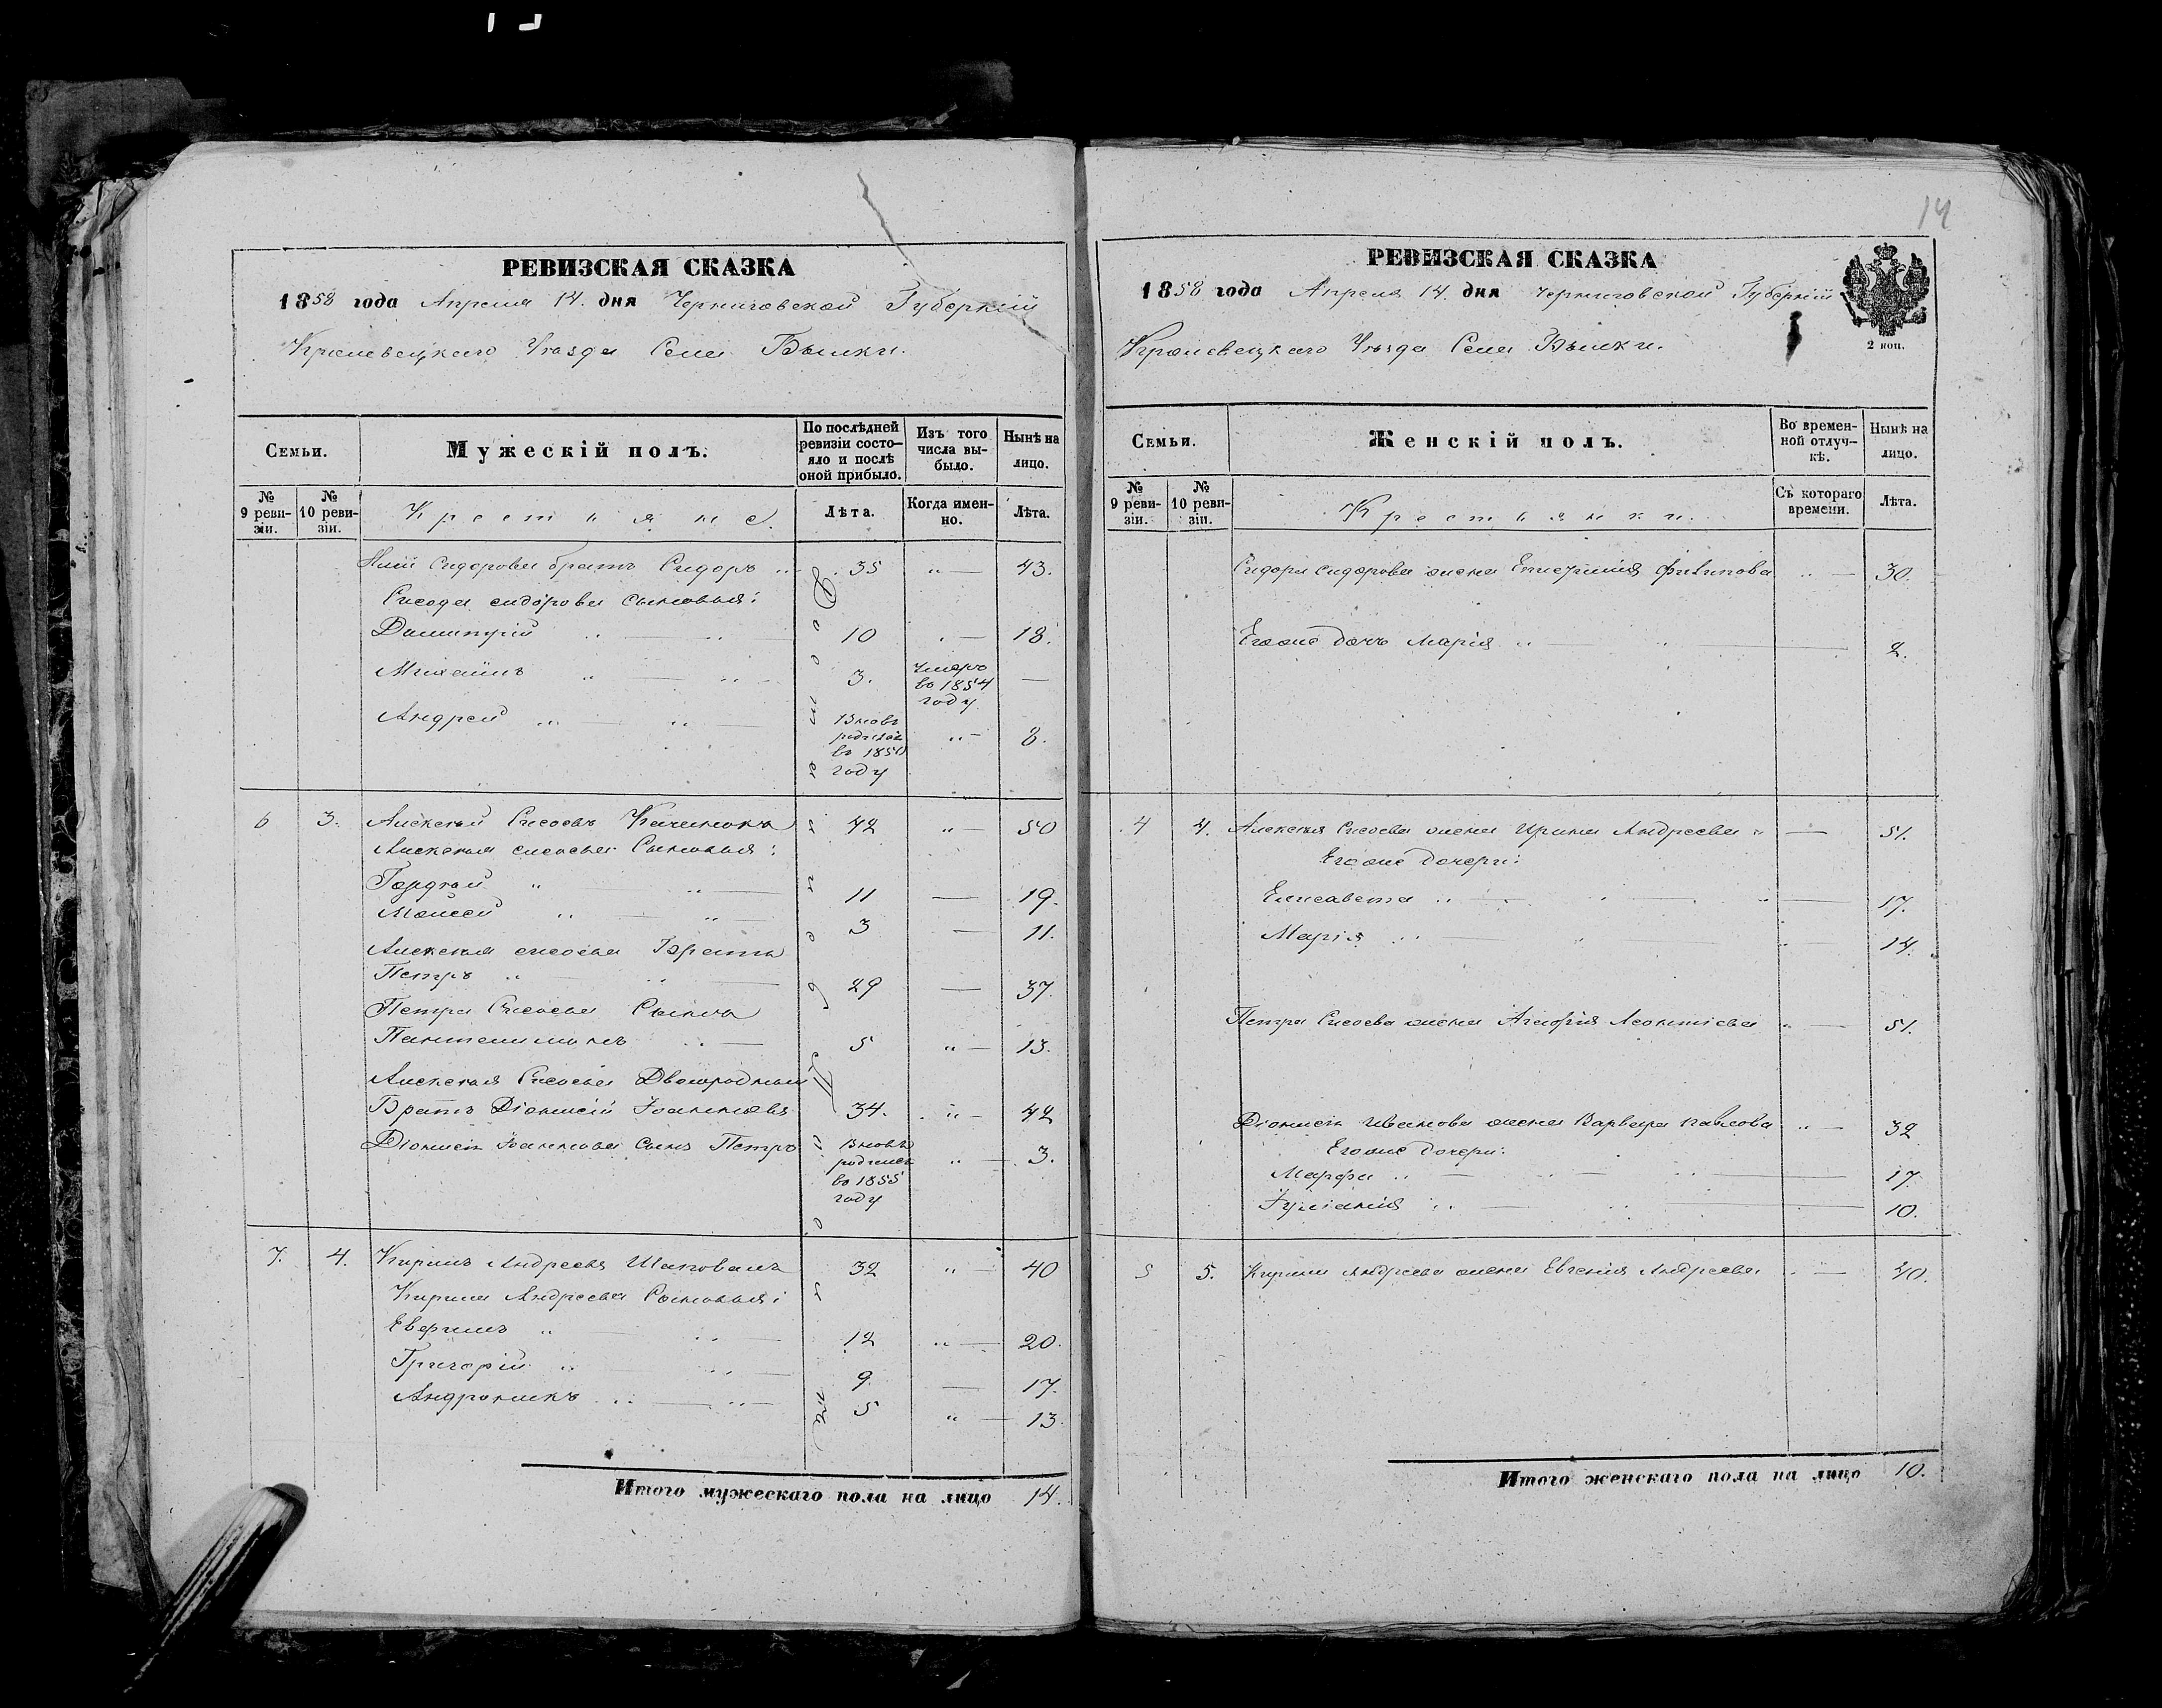 14
РЕВИЗСКАЯ СКАЗКА
1858 года Апреля 14. дня Черниговской Губернiи
Кролевецкаго Уѣзда Села Бышки.
Семьи.
Мужескій полъ.
По послѣдней ревизіи состо-
яло и послѣ
оной прибыло.
Изъ того
числа вы-
было.
Нынѣ на
лицо.
№
9 реви-
зіи.
№
10 реви-
зіи.
Крестьяне.
Лѣта.
Когда имен-
но.
Лѣта.
Сидорова братъ Сидоръ 35 " — 43.
сидорова сыновья:
Димитрій 10 " — 18.
Михаилъ 3. Умеръ
во 1854
году —
Андрей Вновь
родился
въ 1850
году " — 8.
6 3. Алексѣй Сисоевъ 42 " — 50
Алексѣя сисоева Сыновья:
Гордѣй " 11 — 19.
Моисей " 3 — 11.
Алексѣя сисоева Братъ
Петръ " 29 — 37.
Петра Сисоева Сынъ
Пантелимонъ 5 " — 13.
Алексѣя Сисоева Двоюродный
Братъ Діонисій Іоанновъ 34. " — 42
Діонисія Іоаннова сынъ Петръ Вновь
родился
во 1855
году " — 3.
7. 4. Кирилъ Андреевъ Шаповалъ 32 " — 40
Кирила Андреева Сыновья:
12 " — 20.
Григорій " 9. — 17.
Андроникъ 5 " — 13.
Итого мужескаго пола на лицо 14.
РЕВИЗСКАЯ СКАЗКА
1858 года Апреля 14. дня Черниговской Губерніи
Кролевецкаго Уѣзда Села Бышки.
2 коп.
Семьи.
Женскій полъ.
Во времен-
ной отлуч-
кѣ.
Нынѣ на
лицо.
№
9 реви-
зіи.
№
10 реви-
зіи.
Крестьянки.
Съ котораго
времени.
Лѣта.
Сидора сидорова жена Филипова " — 30.
Егоже дочь Марія " 2.
4 4. Алексѣя Сисоева жена Ирина Андреева " — 51.
Егоже дочери:
Елисавета " — 17.
Марія " — 14.
Петра Сисоева жена Агафія Леонтіева " — 51.
Діонисія Иванова жена Варвара Павлова " — 32
Егоже дочери:
Марфа " — 17
Іуліанія " — 10.
5 5. Кирила Андреева жена Евгенія Андреева " — 40.
Итого женскаго пола на лицо 10.